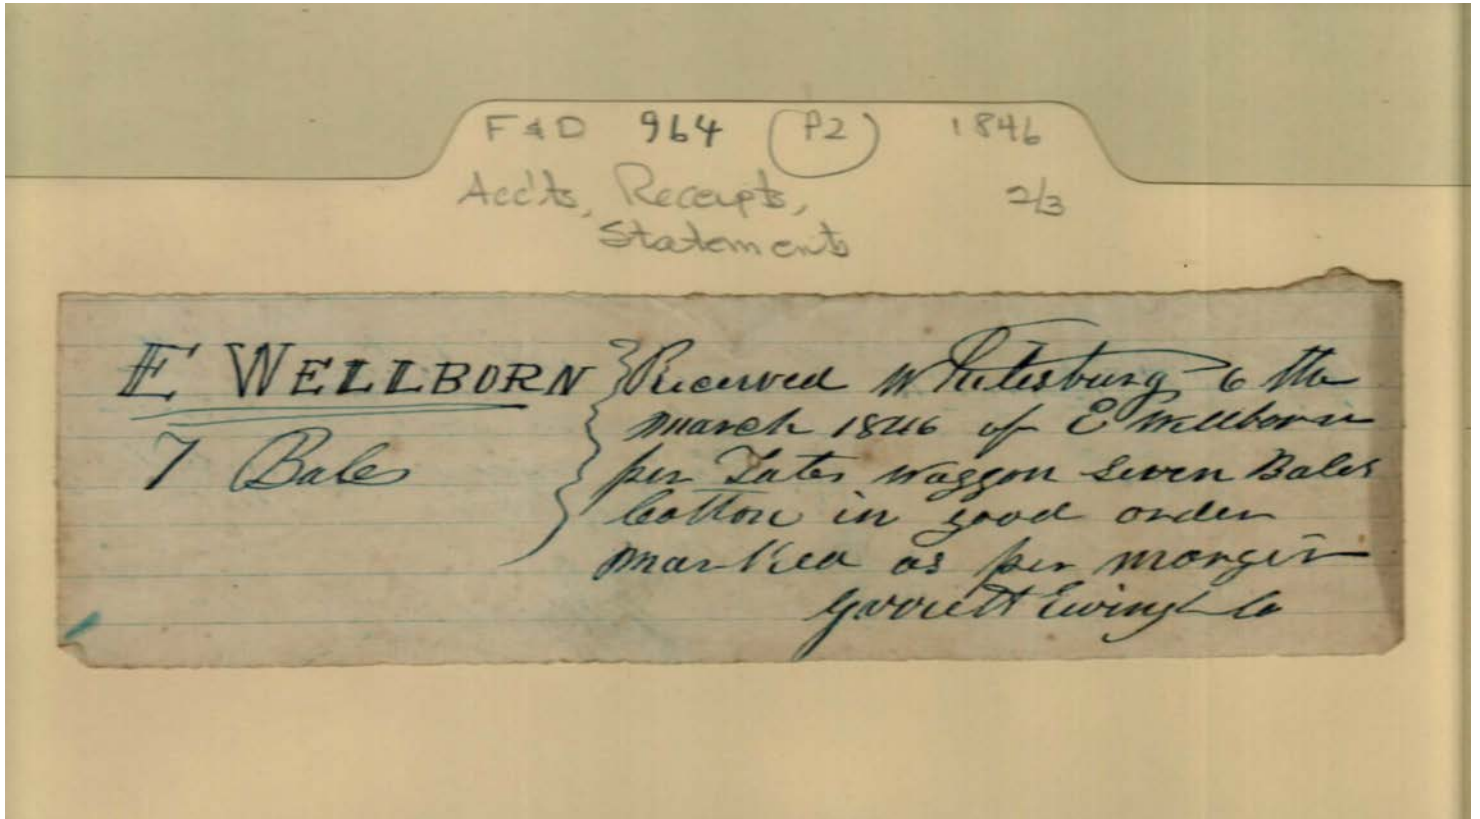 F & D 964 (P2) 1846
Acc'ts, Receipts, 2/3
Statements
E WELLBORN
7 Bales
Received Whitesburg 6 th
march 1846 of E Wellborn
per Yates waggon Seven Bales
Cotton in good order
marked as per margin
Garrett Ewing & Co